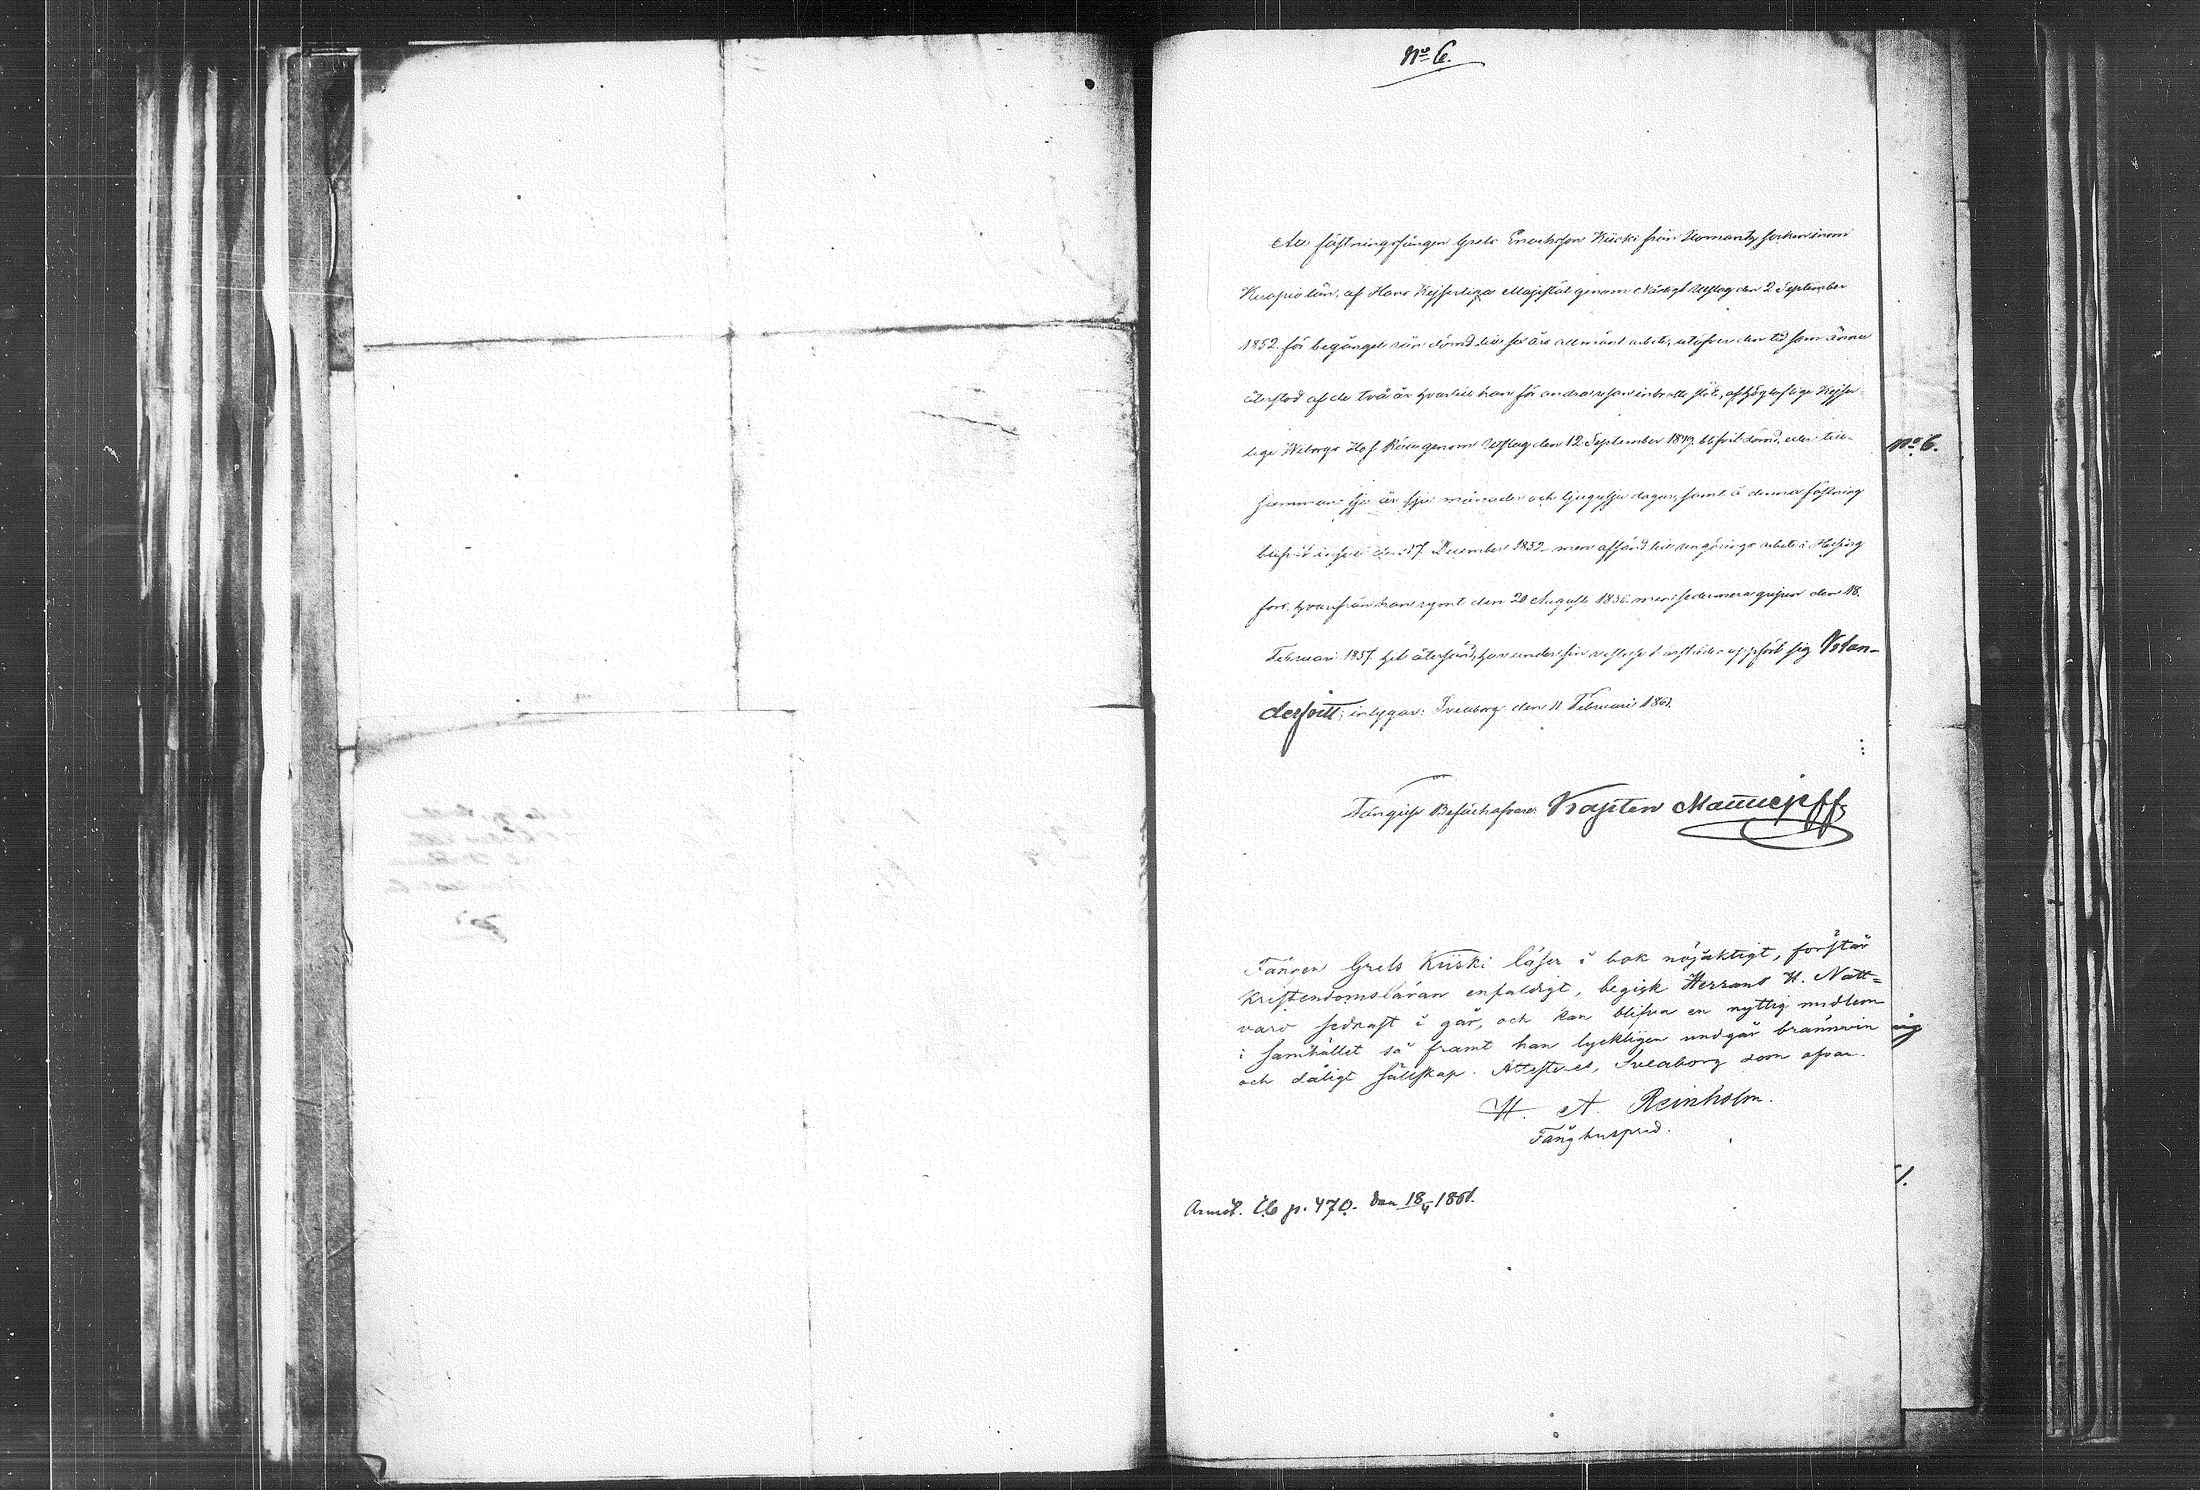 No 6.
Att fästningsfången Grels Enarksson Kiiski från Ilomants socken inom
Kuopio län, af Hans Kejserliga Majestät genom Nådigt Utslag den 2 September
1852. för begånget rån dömd till sex års allmänt arbete, utöfver den tid som ännu
återstod af de två år hvartill han för andra resan inbrotts stöld, af Höglofliga Kejser
liga Wiborgs Hof Rätt genom Utslag den 12 September 1849. blifvit dömd, eller till-
samman sju år sju månader och tjugusju dagar, samt å denna fästning
blifvit insatt den 17 December 1852. men afsänd till rengörings arbete i Helsing
fors, hvarifrån han rymt den 20 Augusti 1856. men sedermera gripen den 18.
Februari 1857. hit återsänd, har under sin arbetstid härstädes uppfört sig Klan-
derfritt; intygar: Sveaborg den 11 Februari 1861.
Fångars Befälhafvare Kapten
Fången Grels Kiiski läser i bok nöjaktigt, förstår
Kristendomsläran enfaldigt, begick Herrans H. Natt=
vard sednast i går, och kan blifva en nyttig medlem
i samhället så framt han lyckligen undgår brännvin
och dåligt sällskap. Attesteras, Sveaborg som ofvan.
H. A. Reinholm.
Fånghuspred.
p. 470. den 18/4 1861.
No 6.